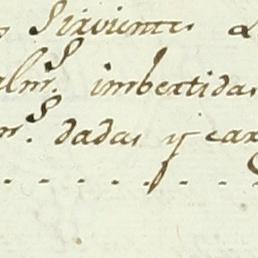 Sirvientes
alms. imbertidas
ms. dadas y